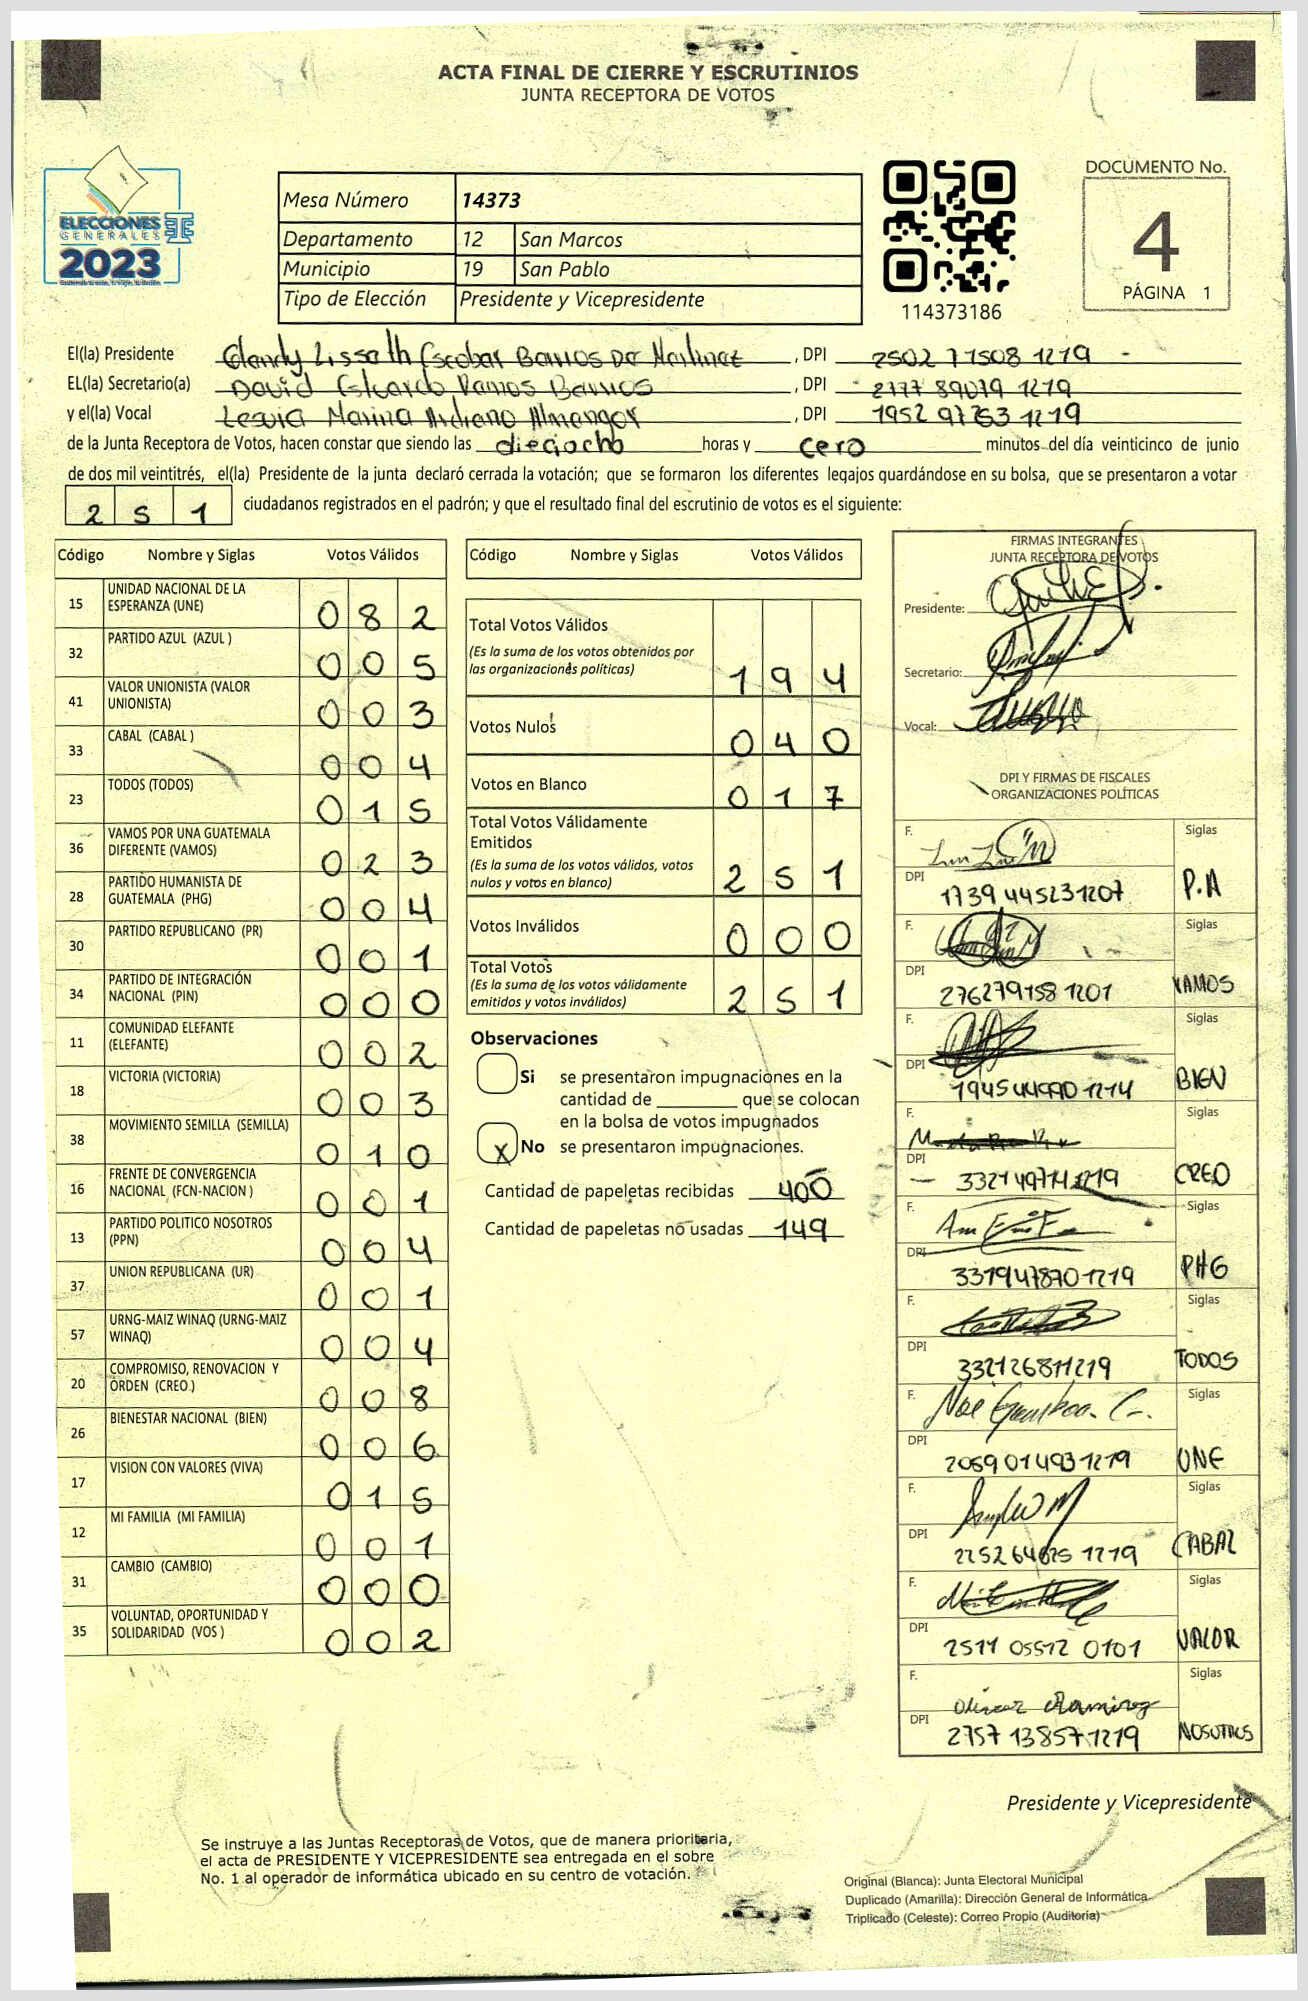 ACTA FINAL DE CIERRE Y ESCRUTINIOS
JUNTA RECEPTORA DE VOTOS
ELECCIONES
GENERALES
2023
Mesa Número 14373
Departamento 12 San Marcos
Municipio 19 San Pablo
Tipo de Elección Presidente y Vicepresidente
114373186
DOCUMENTO No.
4
PÁGINA 1
El(la) Presidente Glendy Lisseth Escobar Barrios De Martinez , DPI 2502 71508 1219
EL(la) Secretario(a) David Eduardo Ramos Barrios , DPI 2777 89079 1219
y el(la) Vocal Lesvia Marina Almengor , DPI 1952 97763 1219
de la Junta Receptora de Votos, hacen constar que siendo las dieciocho horas y cero minutos del día veinticinco de junio
de dos mil veintitrés, el(la) Presidente de la junta declaró cerrada la votación; que se formaron los diferentes legajos guardándose en su bolsa, que se presentaron a votar
251 ciudadanos registrados en el padrón; y que el resultado final del escrutinio de votos es el siguiente:
Código Nombre y Siglas Votos Válidos
15 UNIDAD NACIONAL DE LA
ESPERANZA (UNE) 082
32 PARTIDO AZUL (AZUL ) 005
41 VALOR UNIONISTA (VALOR
UNIONISTA) 003
33 CABAL (CABAL ) 004
23 TODOS (TODOS) 015
36 VAMOS POR UNA GUATEMALA
DIFERENTE (VAMOS) 023
28 PARTIDO HUMANISTA DE
GUATEMALA (PHG) 004
30 PARTIDO REPUBLICANO (PR) 001
34 PARTIDO DE INTEGRACIÓN
NACIONAL (PIN) 000
11 COMUNIDAD ELEFANTE
(ELEFANTE) 002
18 VICTORIA (VICTORIA) 003
38 MOVIMIENTO SEMILLA (SEMILLA) 010
16 FRENTE DE CONVERGENCIA
NACIONAL (FCN-NACION ) 001
13 PARTIDO POLITICO NOSOTROS
(PPN) 004
37 UNION REPUBLICANA (UR) 001
57 URNG-MAIZ WINAQ (URNG-MAIZ
WINAQ) 004
20 COMPROMISO, RENOVACION Y
ORDEN (CREO.) 008
26 BIENESTAR NACIONAL (BIEN) 006
17 VISION CON VALORES (VIVA) 015
12 MI FAMILIA (MI FAMILIA) 001
31 CAMBIO (CAMBIO) 000
35 VOLUNTAD, OPORTUNIDAD Y
SOLIDARIDAD (VOS ) 002
Código Nombre y Siglas Votos Válidos
Total Votos Válidos
(Es la suma de los votos obtenidos por
las organizaciones políticas) 194
Votos Nulos 040
Votos en Blanco 017
Total Votos Válidamente
Emitidos
(Es la suma de los votos válidos, votos
nulos y votos en blanco) 251
Votos Inválidos 000
Total Votos
(Es la suma de los votos válidamente
emitidos y votos inválidos) 251
Observaciones
Si se presentaron impugnaciones en la
cantidad de ________ que se colocan
en la bolsa de votos impugnados
X No se presentaron impugnaciones.
Cantidad de papeletas recibidas 400
Cantidad de papeletas no usadas 149
FIRMAS INTEGRANTES
JUNTA RECEPTORA DE VOTOS
Presidente:
Secretario:
Vocal:
DPI Y FIRMAS DE FISCALES
ORGANIZACIONES POLÍTICAS
F. Siglas
DPI 1739 44523 1207 P.A
F. Siglas
DPI 276279158 1201 VAMOS
F. Siglas
DPI 1945 44990 1214 BIEN
F. Siglas
DPI 3321 49714 1219 CREO
F. Siglas
DPI 3319478701219 PHG
F. Siglas
DPI 332126811219 TODOS
F. Noé Gamboa. C. Siglas
DPI 2059 01493 1219 UNE
F. Siglas
DPI 2252 64625 1219 CABAL
F. Siglas
DPI 2511 05512 0101 VALOR
F. Ramirez Siglas
DPI 2757 13857 1219 NOSOTROS
Presidente y Vicepresidente
Se instruye a las Juntas Receptoras de Votos, que de manera prioritaria,
el acta de PRESIDENTE Y VICEPRESIDENTE sea entregada en el sobre
No. 1 al operador de informática ubicado en su centro de votación.
Original (Blanca): Junta Electoral Municipal
Duplicado (Amarilla): Dirección General de Informática
Triplicado (Celeste): Correo Propio (Auditoría)